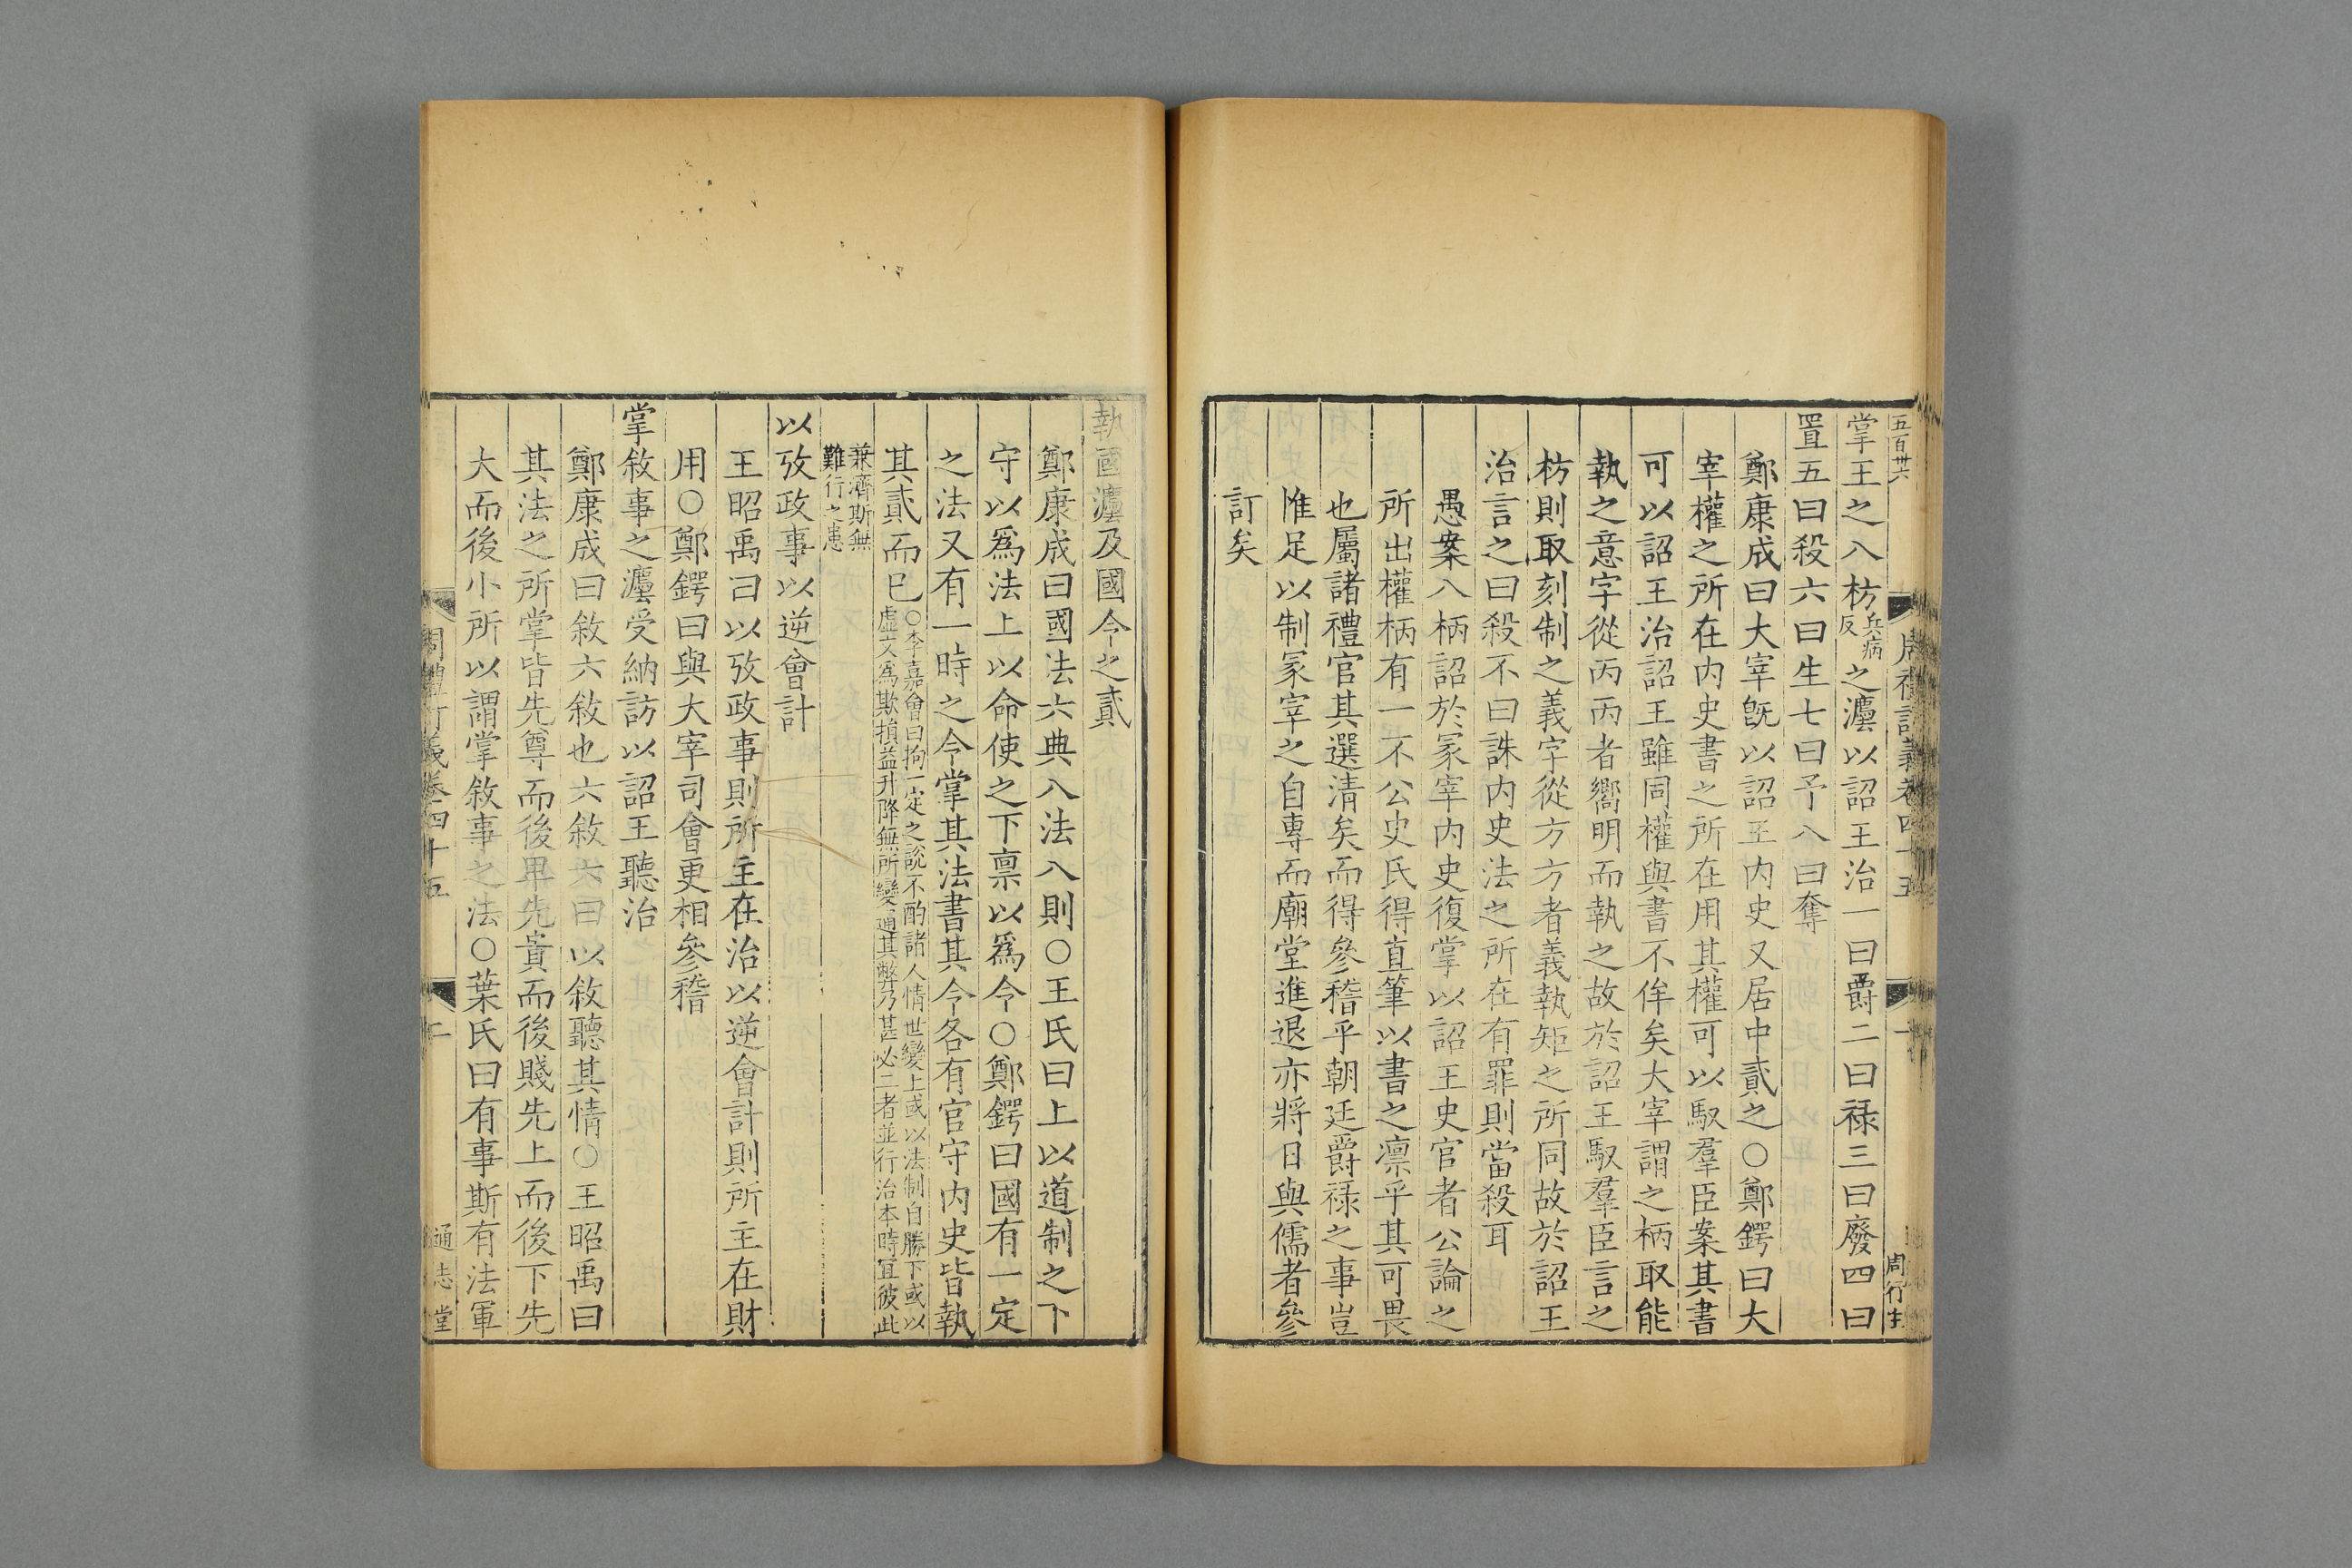 五百卅六
周禮訂義卷四十五
一
周行生
掌王之八枋兵病反之灋以詔王治一曰爵二曰祿三曰廢四曰
置五曰殺六曰生七曰予八曰奪
鄭康成曰大宰旣以詔王内史又居中貳之○鄭鍔曰大
宰權之所在内史書之所在用其權可以馭羣臣案其書
可以詔王治詔王雖同權與書不侔矣大宰謂之柄取能
執之意字從丙丙者嚮明而執之故於詔王馭羣臣言之
枋則取刻制之義字從方方者義執矩之所同故於詔王
治言之曰殺不曰誅内史法之所在有罪則當殺耳
愚案八柄詔於冢宰内史復掌以詔王史官者公論之
所出權柄有一不公史氏得直筆以書之凛乎其可畏
也屬諸禮官其選清矣而得參稽乎朝廷爵祿之事豈
惟足以制冢宰之自專而廟堂進退亦將日與儒者參
訂矣
執國灋及國令之貳
鄭康成曰國法六典八法八則○王氏曰上以道制之下
守以爲法上以命使之下禀以爲令○鄭鍔曰國有一定
之法又有一時之令掌其法書其令各有官守内史皆執
其貳而已○李嘉會曰拘一定之說不酌諸人情世變上或以法制自勝下或以
虛文爲欺損益升降無所變通其弊乃甚必二者並行治本時宜彼此
兼濟斯無
難行之患
以攷政事以逆會計
王昭禹曰以攷政事則所主在治以逆會計則所主在財
用○鄭鍔曰與大宰司會更相參稽
掌敘事之灋受納訪以詔王聽治
鄭康成曰敘六敘也六敘六曰以敘聽其情○王昭禹曰
其法之所掌皆先尊而後卑先貴而後賤先上而後下先
大而後小所以謂掌敘事之法○葉氏曰有事斯有法軍
周禮訂義卷四十五
二
通志堂